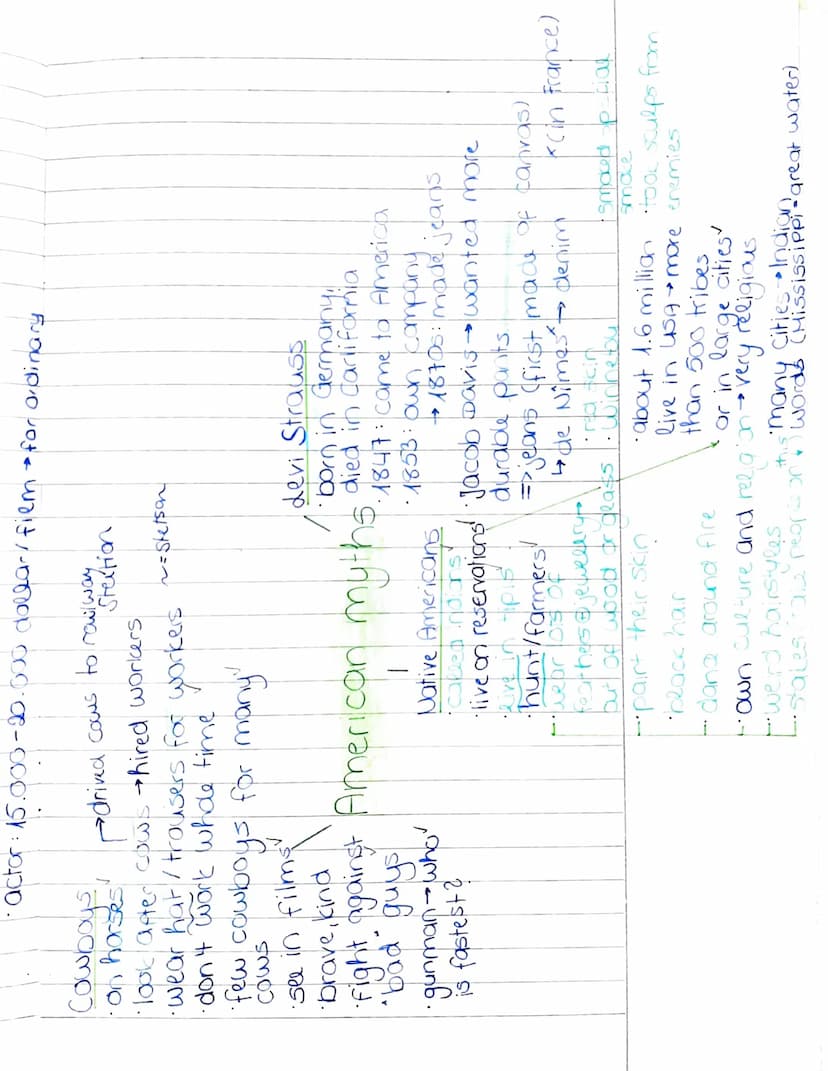 · actor: 15.000-20.000 dollar/film → for ordinary
Cowboys
· on horses ✓ → drived cows to railway
Station
· look after cows → hired workers
· wear hat/trousers for workers ~ = Stetson
· don't work whole time
· few cowboys for many ✓
cows
· see in films ✓
· brave, kind
· fight against
"bad" guys
· gunman → who ✓
is fastest?
American myths
Levi Strauss
· born in Germany,
died in Carlifornia
· 1847: came to America
· 1853: own company
→ 1870s: made jeans
· Jacob Davis → wanted more
durable pants
=> jeans (first made of canvas)
↳ de Nîmes* → denim *(in France)
Native Americans
· called Indians
· live on reservations ✓
· live in tipis
· hunt/farmers ✓
· wear lots of
feathers & jewellery →
out of wood or glass
· red skin
· Winnetou
· smoked special
smoke
· paint their skin
· black hair
· dance around fire
· own culture and religion → very religious
· weird hairstyles
· about 1.6 million
live in USA → more
than 500 tribes
or in large cities ✓
· took sculps from
enemies
· many cities → Indian
words (Mississippi = great water)